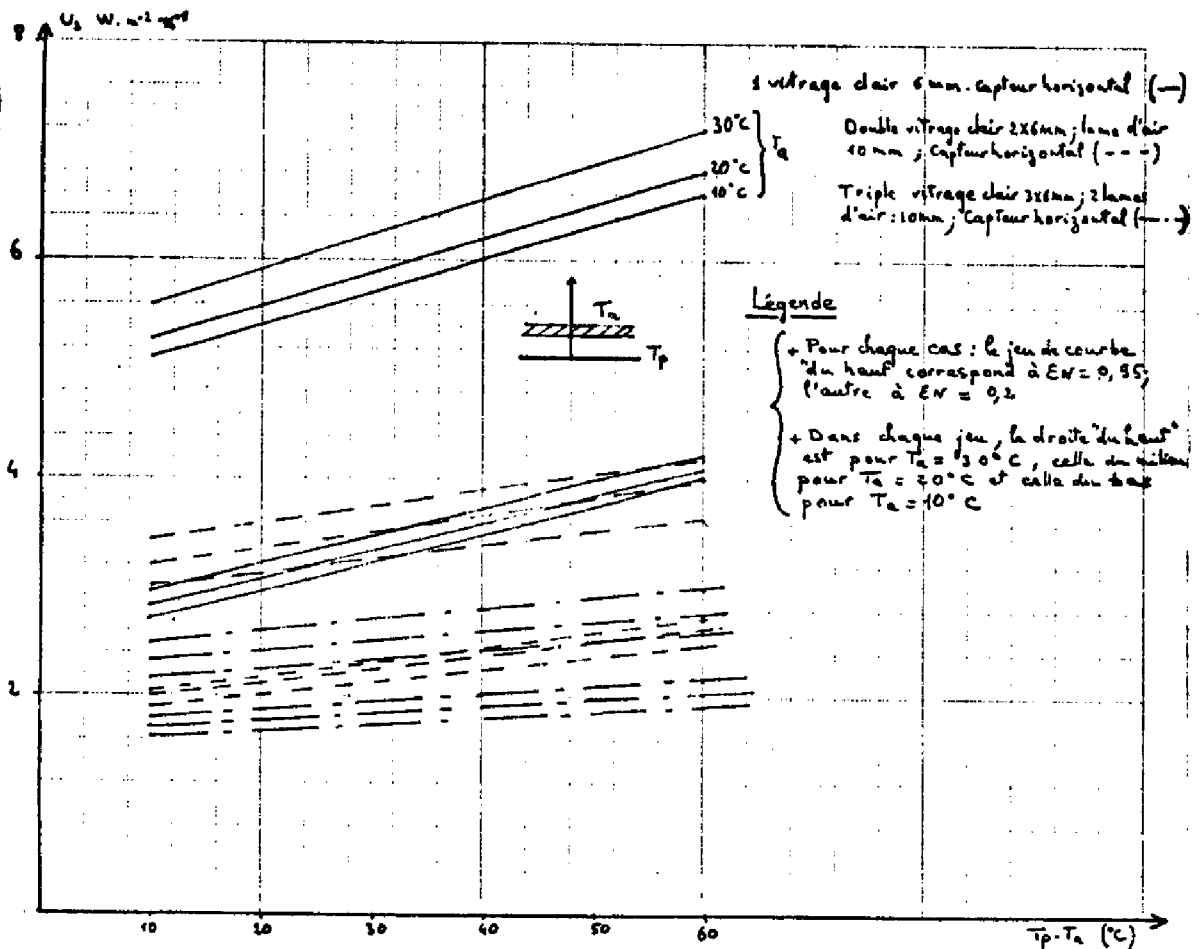 8
U₁ W.m⁻²
1 vitrage clair 6mm. Capteur horizontal (—)
30°C
20°C
10°C
Ta
Double vitrage clair 2x6mm; lame d'air
10 mm ; Capteur horizontal (- - -)
Triple vitrage clair 3x6mm; 2 lames
d'air : 10mm ; Capteur horizontal (—.—)
6
Ta
Tp
Légende
+ Pour chaque cas : le jeu de courbe
"du haut correspond à EN = 0,95;
l'autre à EN = 0,2
+ Dans chaque jeu, la droite "du haut"
est pour Ta = 30° C, celle du milieu
pour Ta = 20° C et celle du bas
pour Ta = 10° C
4
2
10 20 30 40 50 60
Tp-Ta (°C)